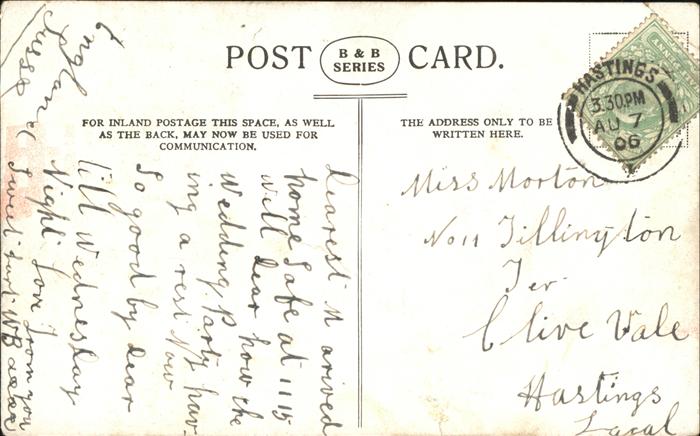 POST CARD.
B & B
SERIES
FOR INLAND POSTAGE THIS SPACE, AS WELL
AS THE BACK, MAY NOW BE USED FOR
COMMUNICATION.
THE ADDRESS ONLY TO BE
WRITTEN HERE.
HASTINGS
3.30PM
AU 7
06
Dearest M arived
home Safe at 11 15
will dear how the
Wedding Party hav-
ing a rest Now
So good by dear
till Wednesday
Night Love from you
Sweet hart WB
England
Sussex
Miss Morton
No 11 Tillington
Ter
Clive Vale
Hastings
Local